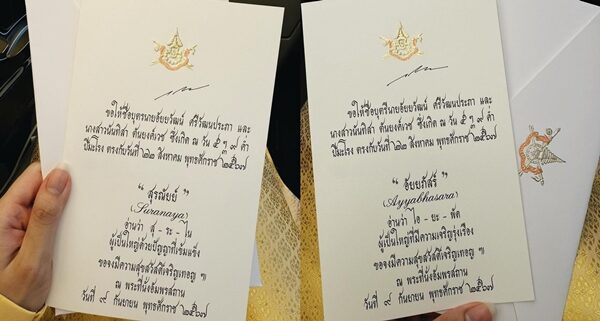 ขอให้ชื่อบุตรีนายอัยยวัฒน์ ศรีวัฒนประภา และ
นางสาวนันทิสา ตันยงค์เวช ซึ่งเกิด ณ วัน ๕ ๗ ๙ ค่ำ
ปีมะโรง ตรงกับวันที่ ๒๒ สิงหาคม พุทธศักราช ๒๕๖๗
“ สุรณัยย์ ”
(Suranaya)
อ่านว่า สุ - ระ - ไน
ผู้เป็นใหญ่ด้วยปัญญาที่เข้มแข็ง
ขอจงมีความสุขสวัสดีเจริญเทอญ ๆ
ณ พระที่นั่งอัมพรสถาน
วันที่ ๙ กันยายน พุทธศักราช ๒๕๖๗
ขอให้ชื่อบุตรีนายอัยยวัฒน์ ศรีวัฒนประภา และ
นางสาวนันทิสา ตันยงค์เวช ซึ่งเกิด ณ วัน ๕ ๗ ๙ ค่ำ
ปีมะโรง ตรงกับวันที่ ๒๒ สิงหาคม พุทธศักราช ๒๕๖๗
“ อัยยภัสร์ ”
(Ayyabhasara)
อ่านว่า ไอ - ยะ - พัด
ผู้เป็นใหญ่ที่มีความเจริญรุ่งเรือง
ขอจงมีความสุขสวัสดีเจริญเทอญ ๆ
ณ พระที่นั่งอัมพรสถาน
วันที่ ๙ กันยายน พุทธศักราช ๒๕๖๗